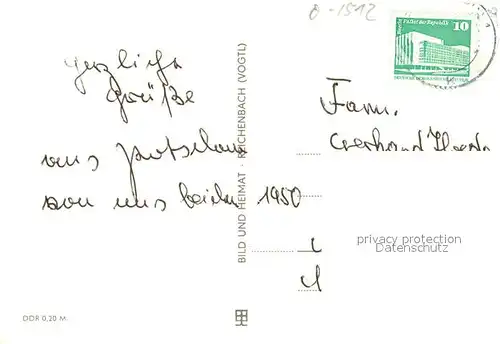 0-1512
Palast der Republik
10
Herzliche
Grüße
aus Potsdam
von uns beiden 1950
Fam.
BILD UND HEIMAT · REICHENBACH (VOGTL)
privacy protection
Datenschutz
DDR 0,20 M